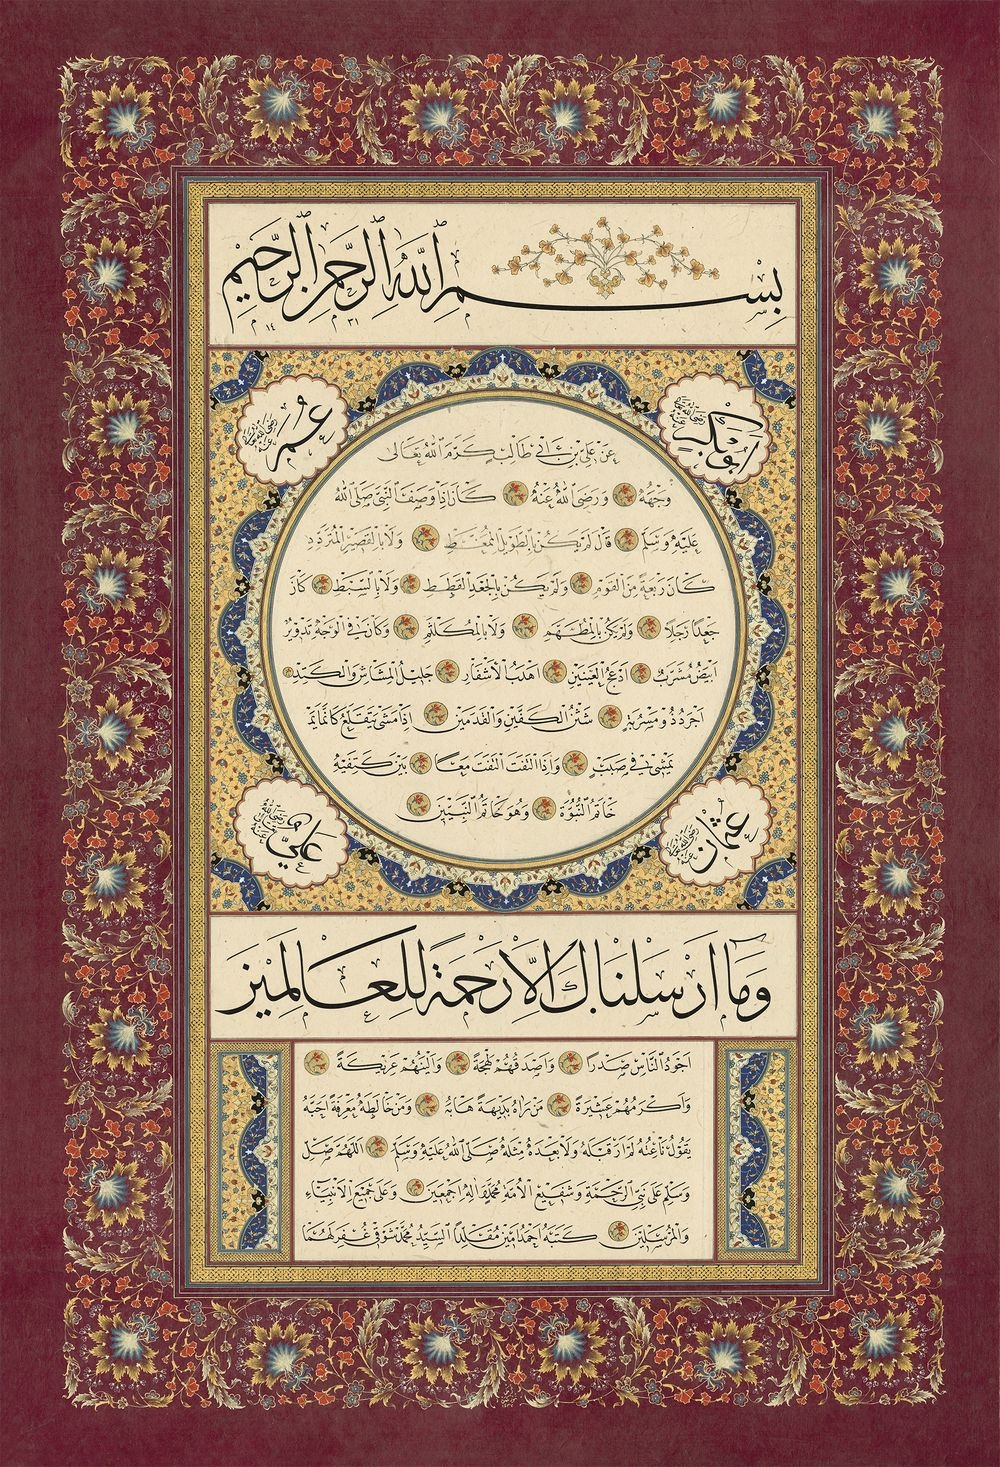 بِسْمِ اللّٰهِ الرَّحْمٰنِ الرَّحِيمِ
ابوبكر رضي الله عنه
عُمَر رضي الله عنه
عن علي بن ابي طالب كرم الله تعالى
وجهه ورضي الله عنه كان اذا وصف النبي صلى الله
عليه وسلم قال لم يكن بالطويل الممغط ولا بالقصير المتردد
كان ربعة من القوم ولم يكن بالجعد القطط ولا بالسبط كان
جعدا رجلا ولم يكن بالمطهم ولا بالمكلثم وكان في الوجه تدوير
ابيض مشرب ادعج العينين اهدب الاشفار جليل المشاش والكتد
اجرد ذو مسربة شثن الكفين والقدمين اذا مشى يتقلع كانما
يمشي في صبب واذا التفت التفت معا بين كتفيه
خاتم النبوة وهو خاتم النبيين
عثمان رضي الله عنه
علي رضي الله عنه
وَمَا اَرْسَلْنَاكَ اِلَّا رَحْمَةً لِلْعَالَمِينَ
اجود الناس صدرا واصدقهم لهجة والينهم عريكة
واكرمهم عشيرة من راه بديهة هابه ومن خالطه معرفة احبه
يقول ناعته لم ار قبله ولا بعده مثله صلى الله عليه وسلم اللهم صل
وسلم على نبي الرحمة وشفيع الامة محمد واله اجمعين وعلى جميع الانبياء
والمرسلين كتبه احمد امين مقلدا السيد محمد شوقي غفر لهما